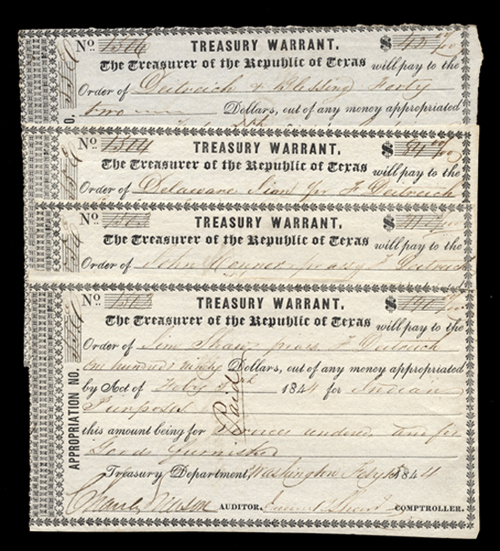 No. 1516 TREASURY WARRANT. $
The Treasurer of the Republic of Texas will pay to the
Order of Deitreich & Blessing Forty
two Dollars, out of any money appropriated
No. 1514 TREASURY WARRANT. $
The Treasurer of the Republic of Texas will pay to the
Order of Delaware Jim for F Deitreich
No. TREASURY WARRANT. $
The Treasurer of the Republic of Texas will pay to the
Order of John Conner F Deitreich
No. TREASURY WARRANT. $
The Treasurer of the Republic of Texas will pay to the
Order of Jim Shaw F Deitreich
one hundred ninety Dollars, out of any money appropriated
by Act of Feby 5th 1844 for Indian
Purposes
Paid
this amount being for Services rendered and for
Goods furnished
Treasury Department, Washington Feby 1844
Charles Mason AUDITOR. COMPTROLLER.
APPROPRIATION NO.